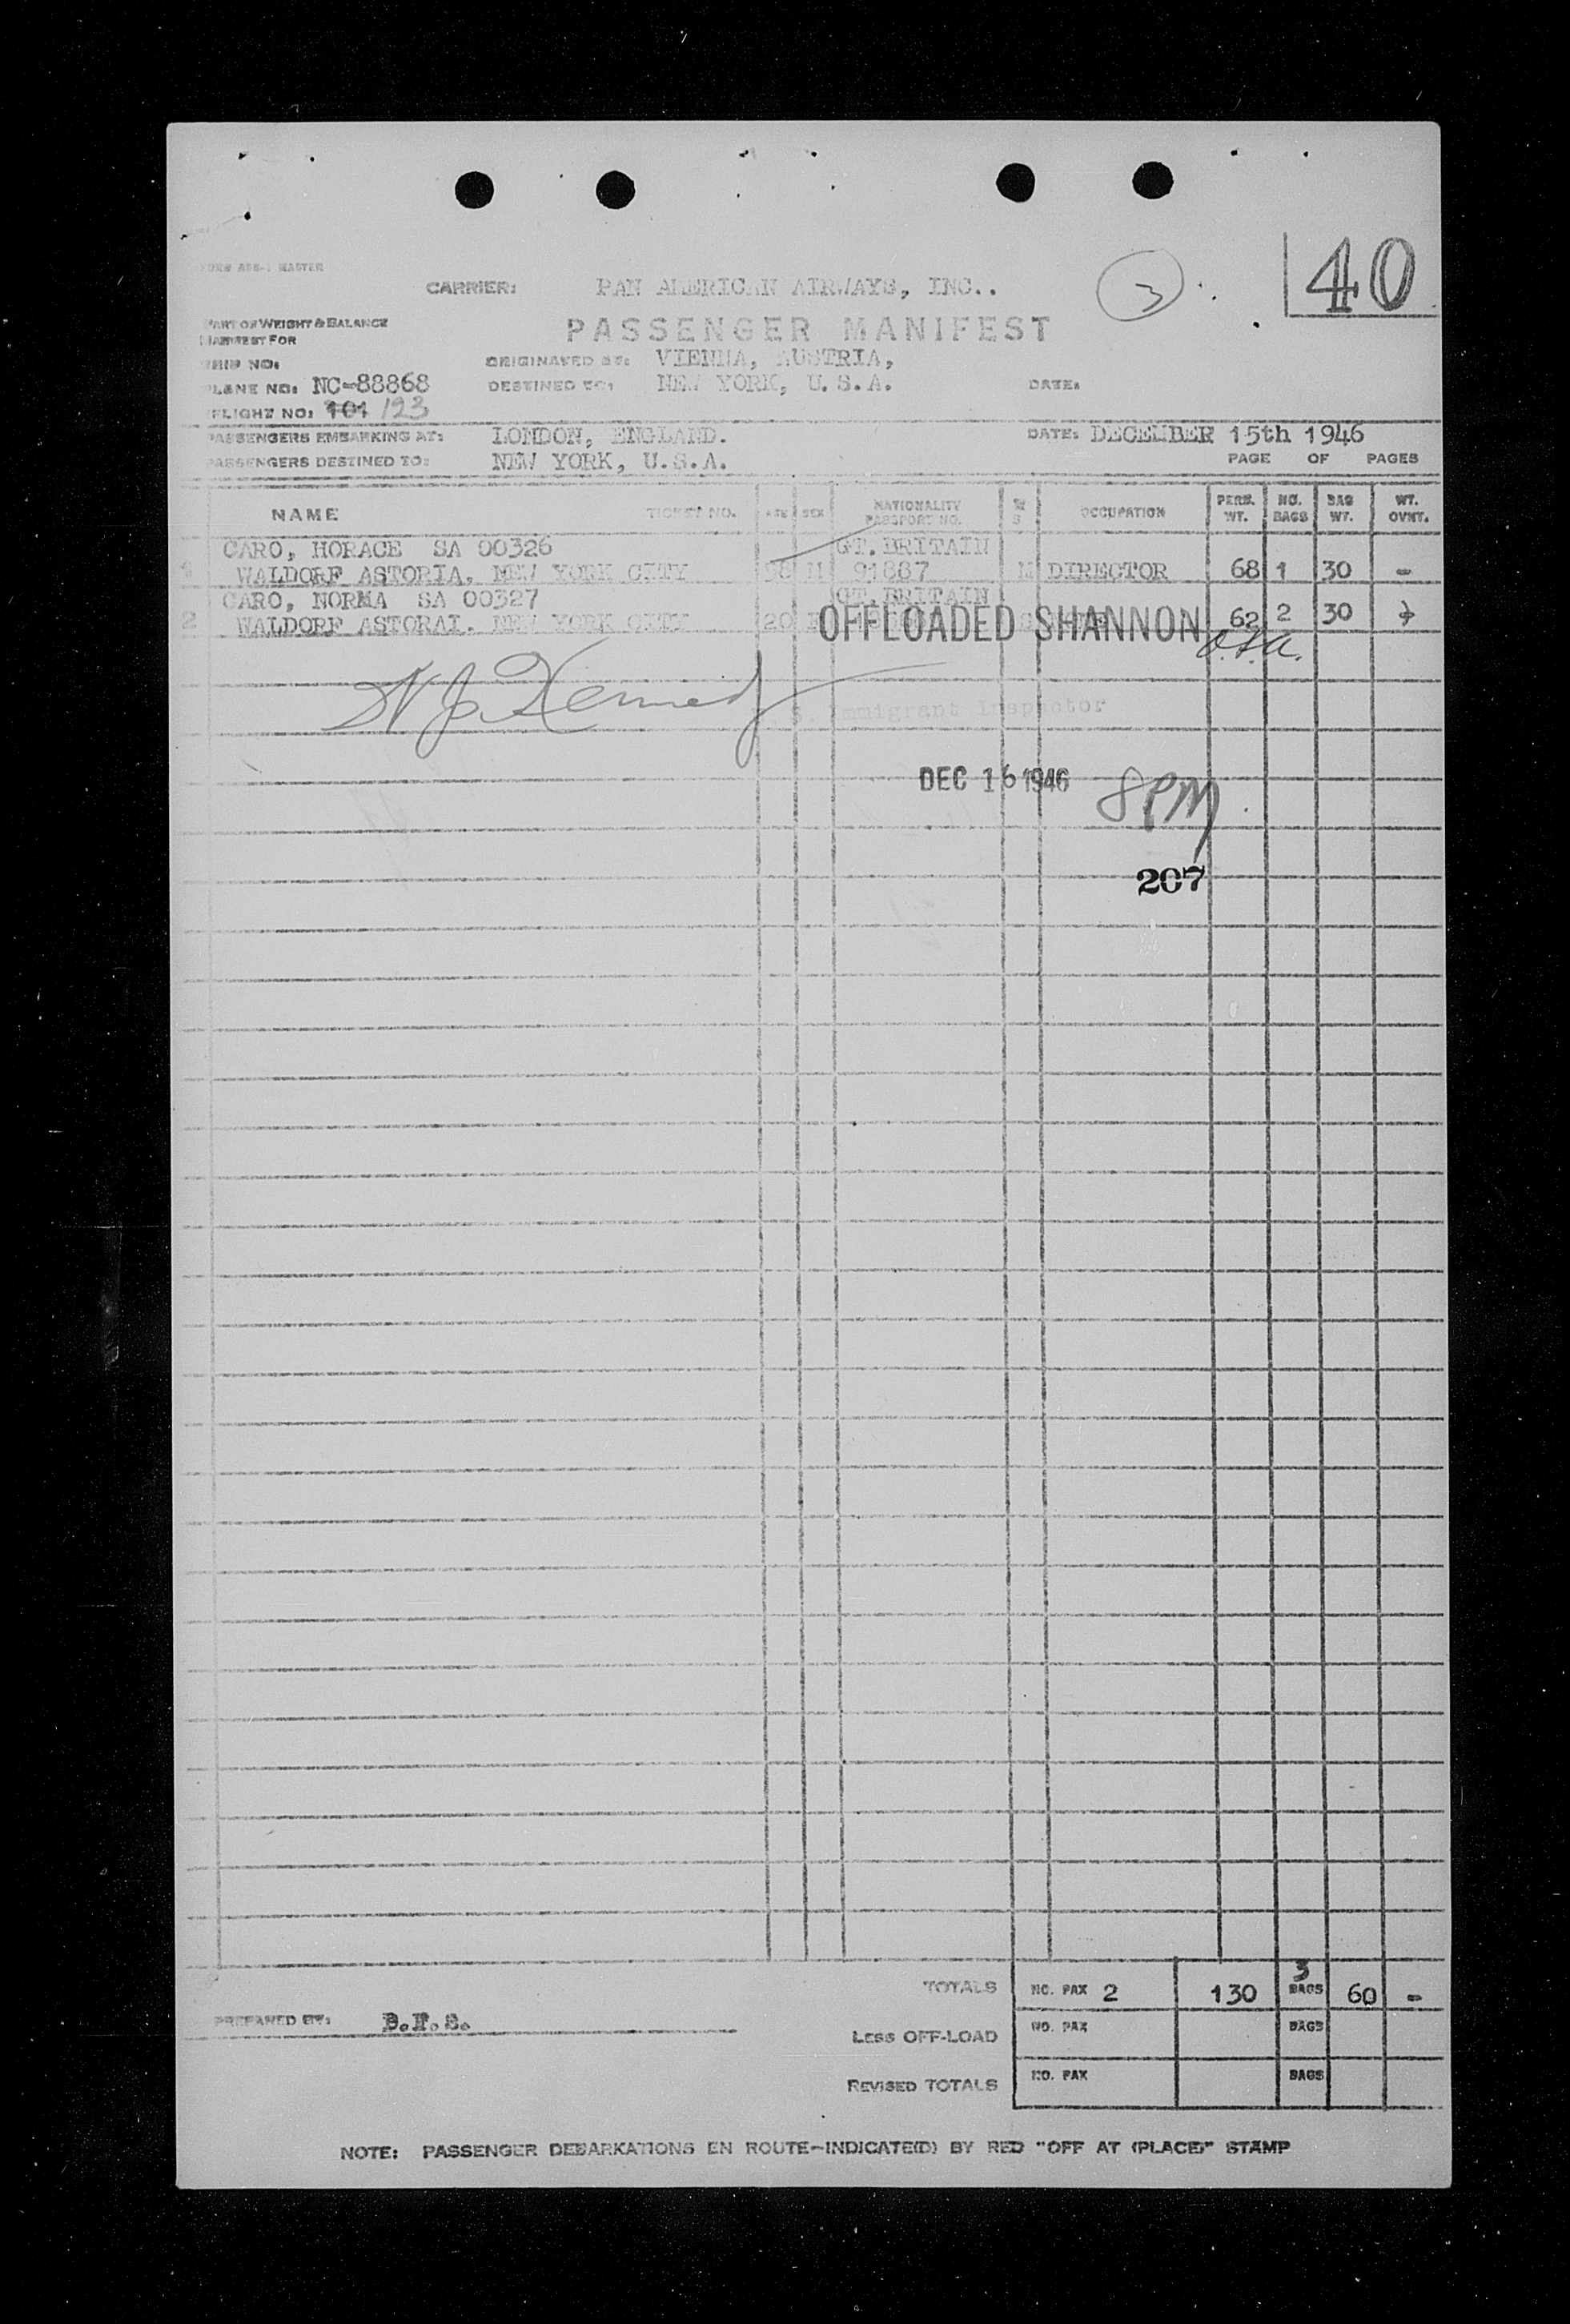 40
3
FORM ADS-1 MASTER
CARRIER: PAN AMERICAN AIRWAYS, INC..
PART OF WEIGHT & BALANCE
MANIFEST FOR
PASSENGER MANIFEST
SHIP NO:
ORIGINATED AT: VIENNA, AUSTRIA,
PLANE NO: NC-88868
DESTINED TO: NEW YORK, U.S.A.
DATE:
FLIGHT NO: 101 123
PASSENGERS EMBARKING AT: LONDON, ENGLAND.
DATE: DECEMBER 15th 1946
PASSENGERS DESTINED TO: NEW YORK, U.S.A.
PAGE OF PAGES
NAME TICKET NO. AGE SEX NATIONALITY PASSPORT NO. M S OCCUPATION PERS. WT. NO. BAGS BAG WT. WT. OVNT.
CARO, HORACE SA 00326 GT.BRITAIN
1 WALDORF ASTORIA, NEW YORK CITY M 91887 M DIRECTOR 68 1 30 -
CARO, NORMA SA 00327 GT.BRITAIN
2 WALDORF ASTORAI. NEW YORK CITY 20 62 2 30
OFFLOADED SHANNON
N J Kennedy
Immigrant Inspector
DEC 16 1946 8PM
207
TOTALS NO. PAX 2 130 3 BAGS 60 -
PREPARED BY:
LESS OFF-LOAD NO. PAX BAGS
REVISED TOTALS NO. PAX BAGS
NOTE: PASSENGER DEBARKATIONS EN ROUTE-INDICATE(D) BY RED "OFF AT (PLACE)" STAMP